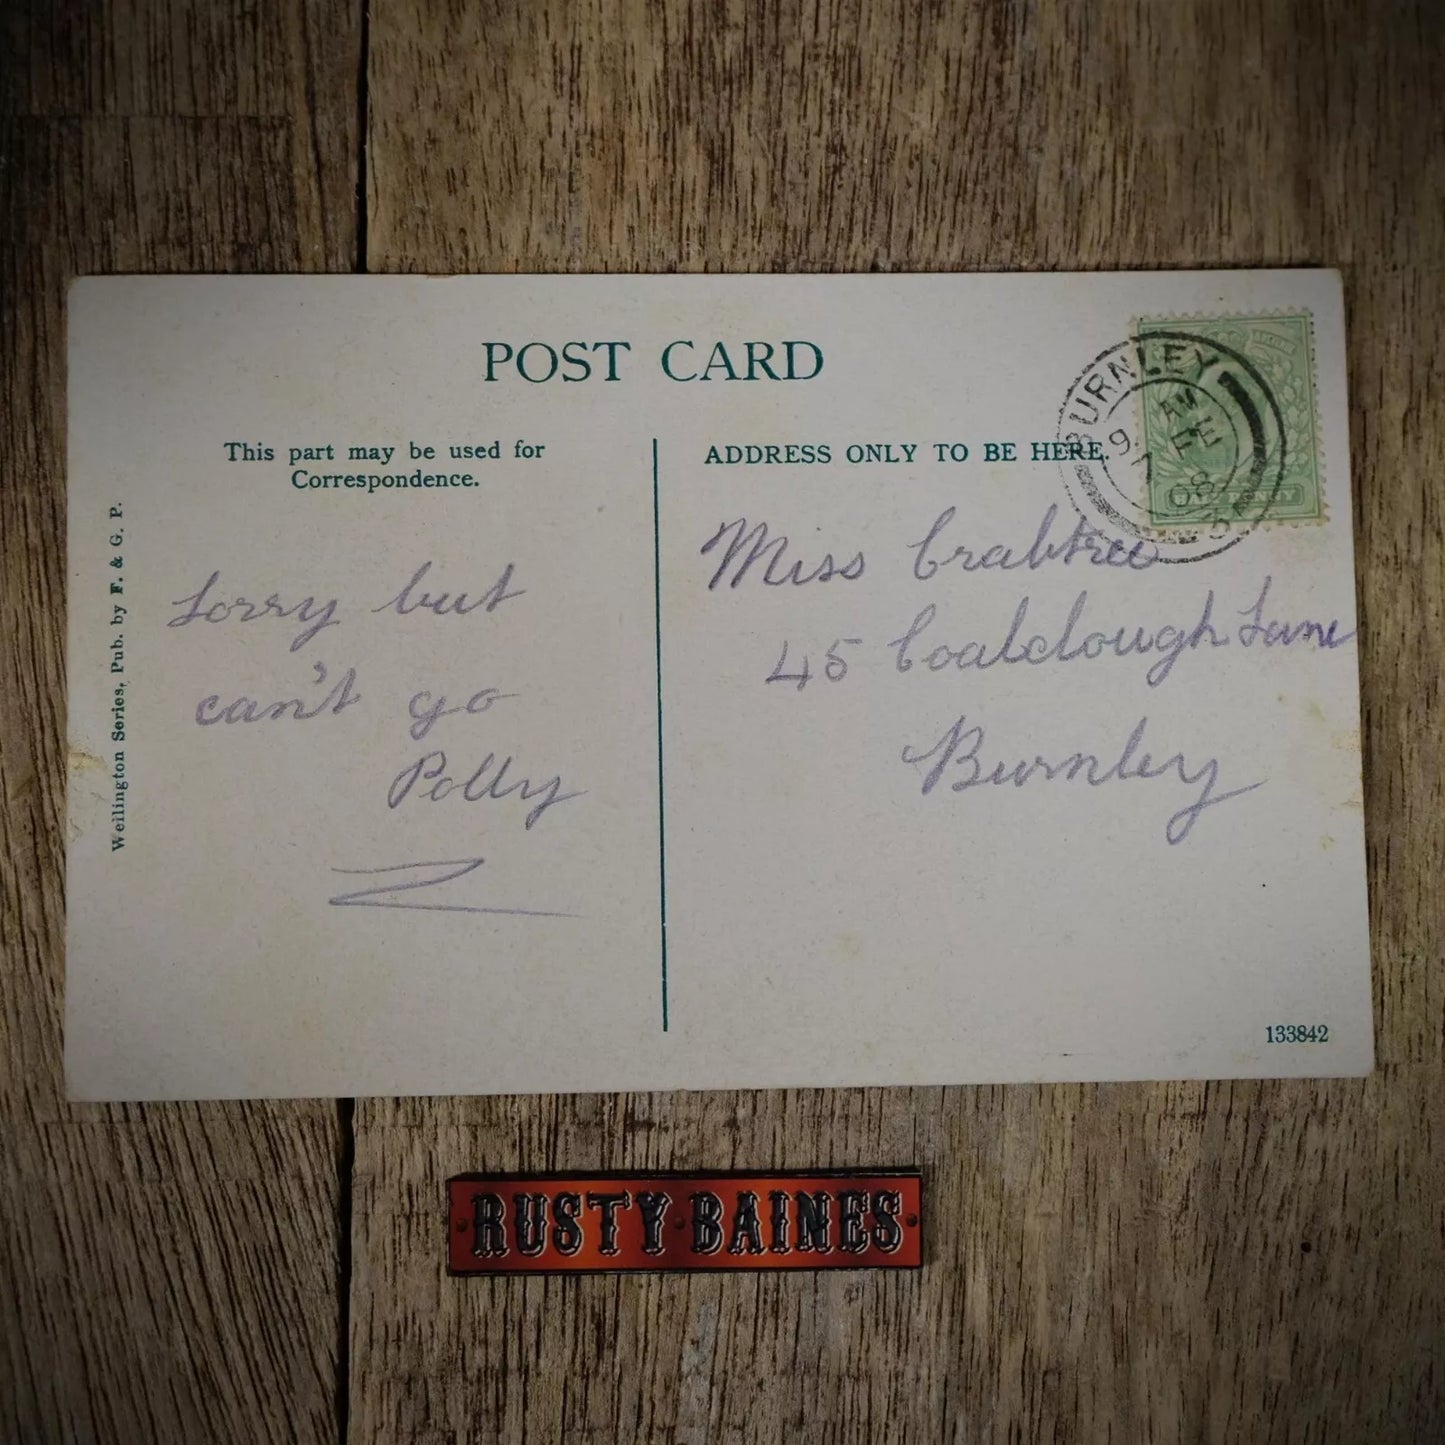 POST CARD
This part may be used for
Correspondence.
ADDRESS ONLY TO BE HERE.
Wellington Series, Pub. by F. & G. P.
Sorry but
can't go
Polly
Miss Crabtree
45 Coalclough Lane
Burnley
BURNLEY
AM
9. FE
7 08
PENNY
133842
RUSTY BAINES